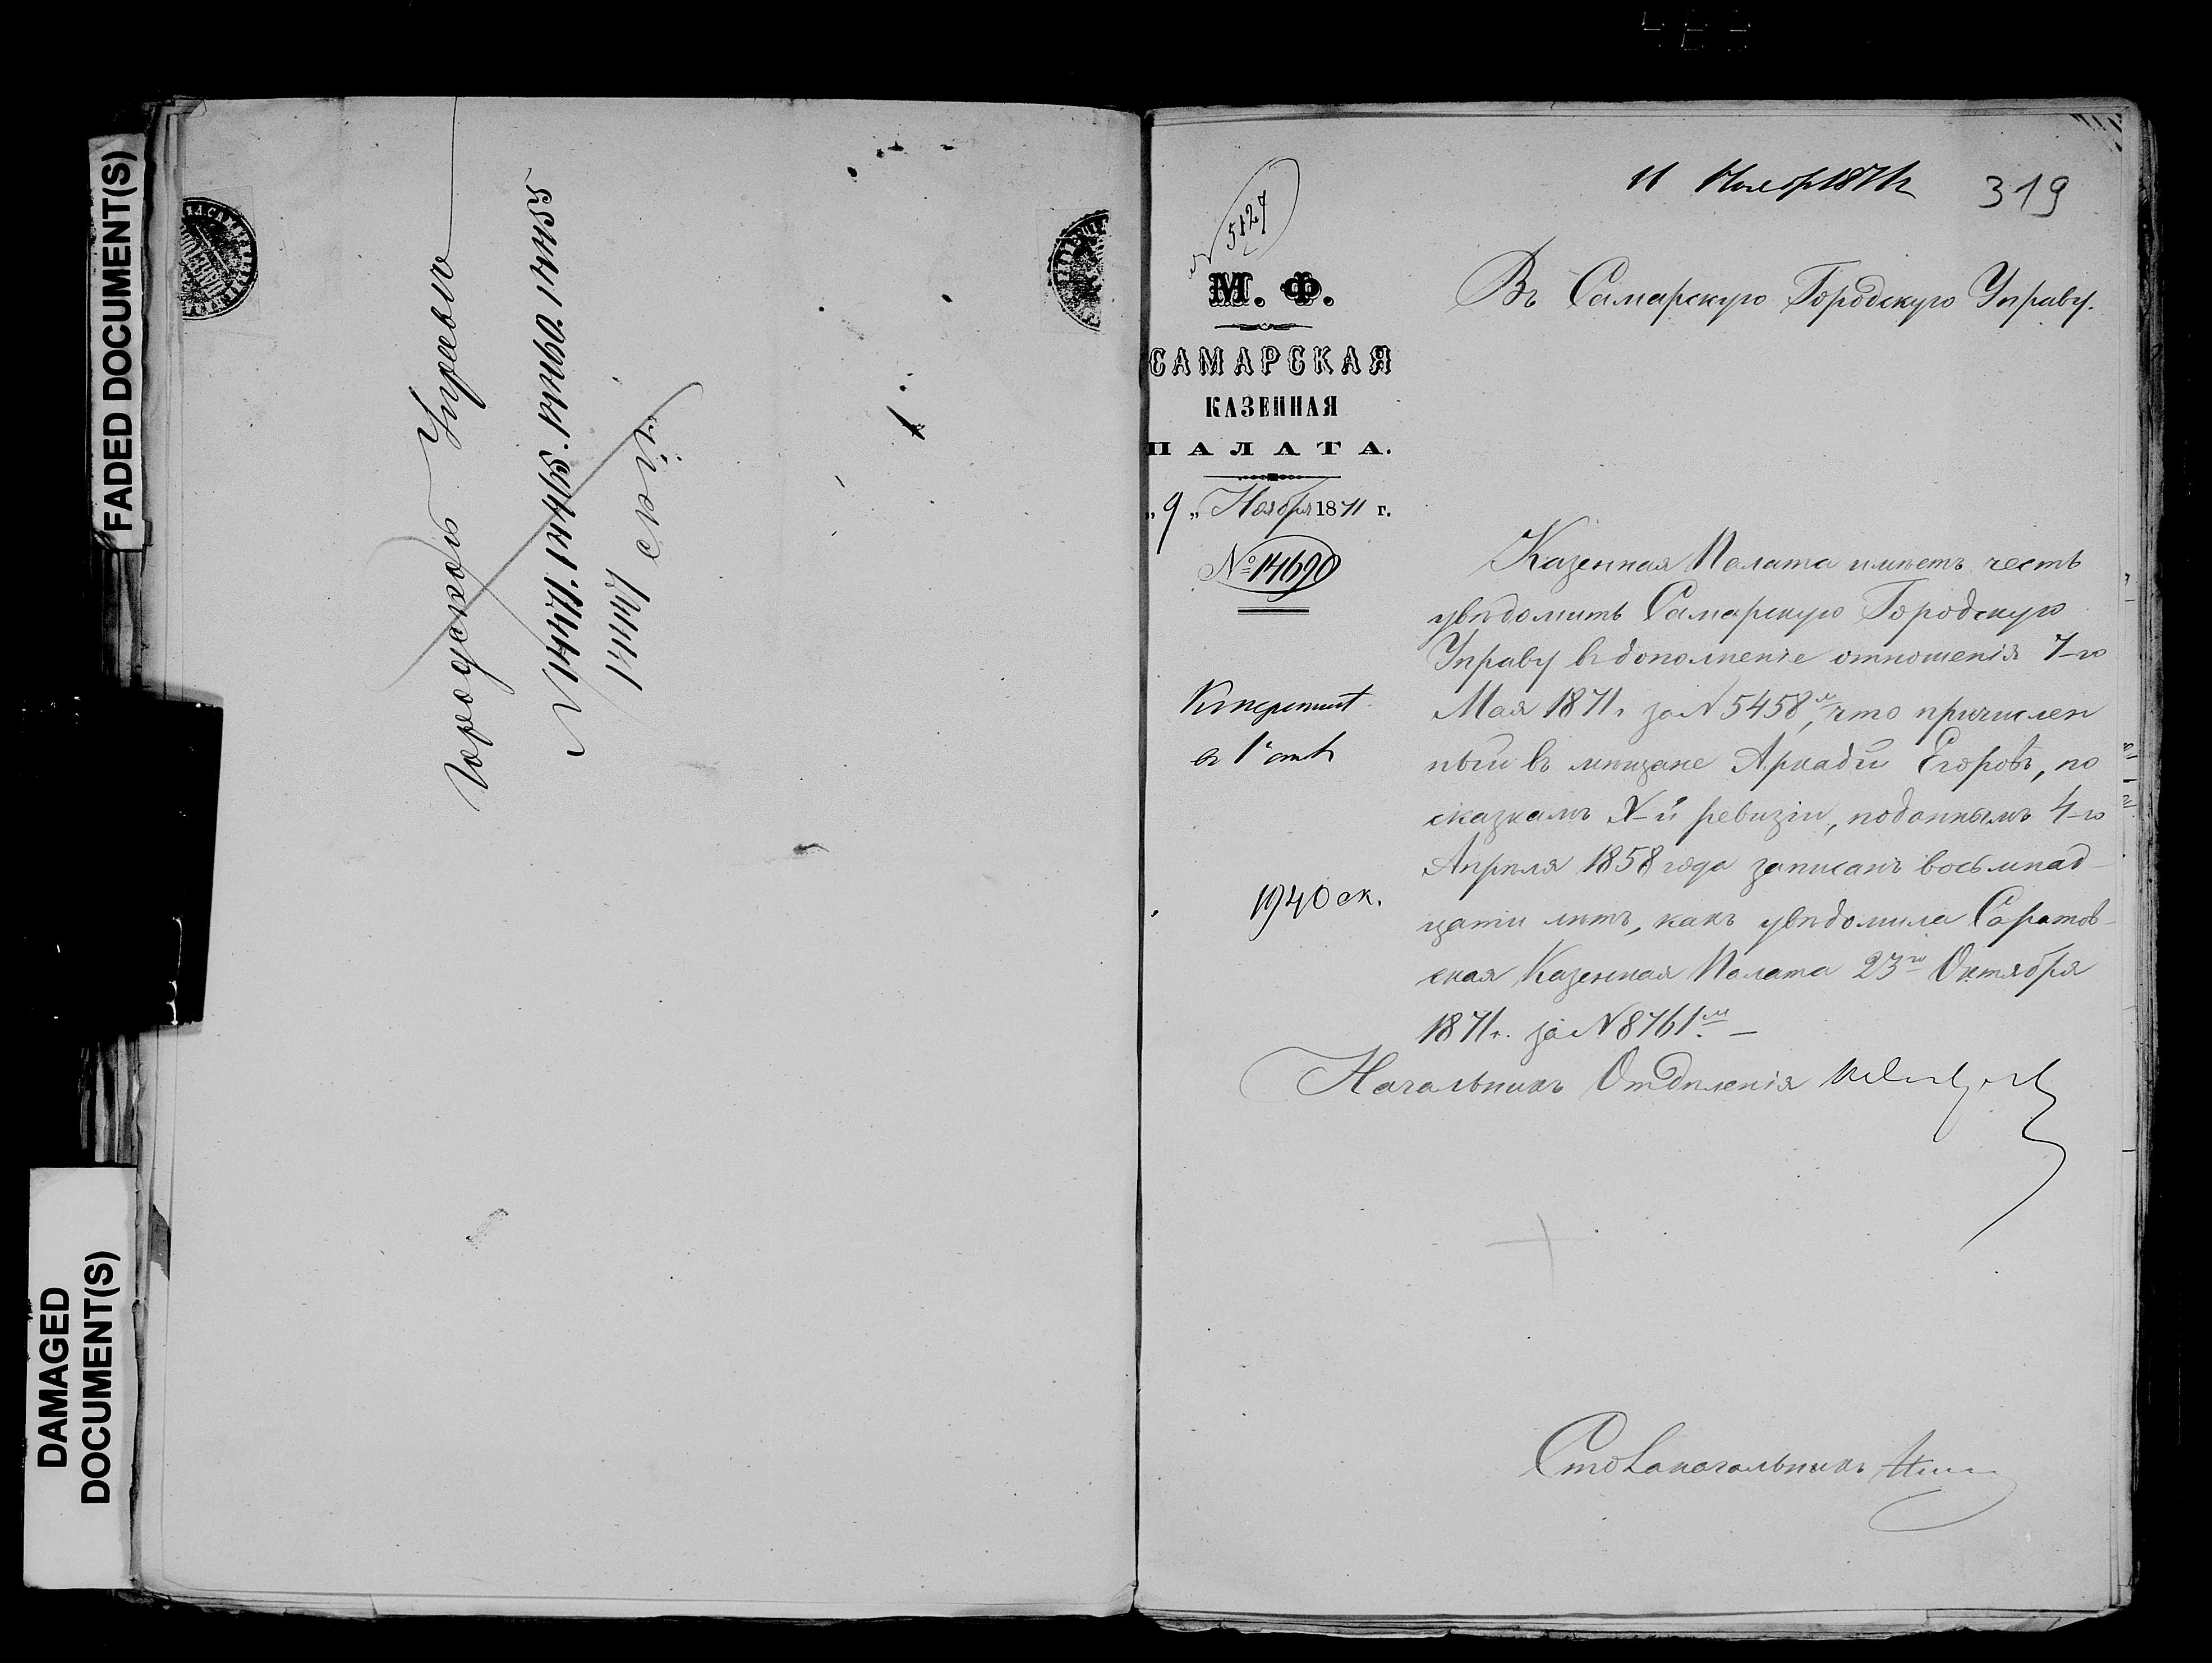 FADED DOCUMENT(S)
DAMAGED
DOCUMENT(S)
Городской Управы
11 Ноября 1871 г
319
№ 5127
М. Ф.
САМАРСКАЯ
КАЗЕННАЯ
ПАЛАТА.
„ 9 „ Ноября 1871 г.
№ 14690
1940 ск.
Въ Самарскую Городскую Управу.
Казенная Палата имѣетъ честь
увѣдомить Самарскую Городскую
Управу въ дополненіе отношенія 7-го
Мая 1871 г. за N 5458м, что причислен
ный въ мѣщане Аркадій Егоровъ, по
сказкамъ X-й ревизіи, поданнымъ 4-го
Апрѣля 1858 года записанъ восьмнад-
цати лѣтъ, какъ увѣдомила Саратов-
ская Казенная Палата 23го Октября
1871 г. за N 8761м. —
Начальникъ Отдѣленія
Столоначальникъ